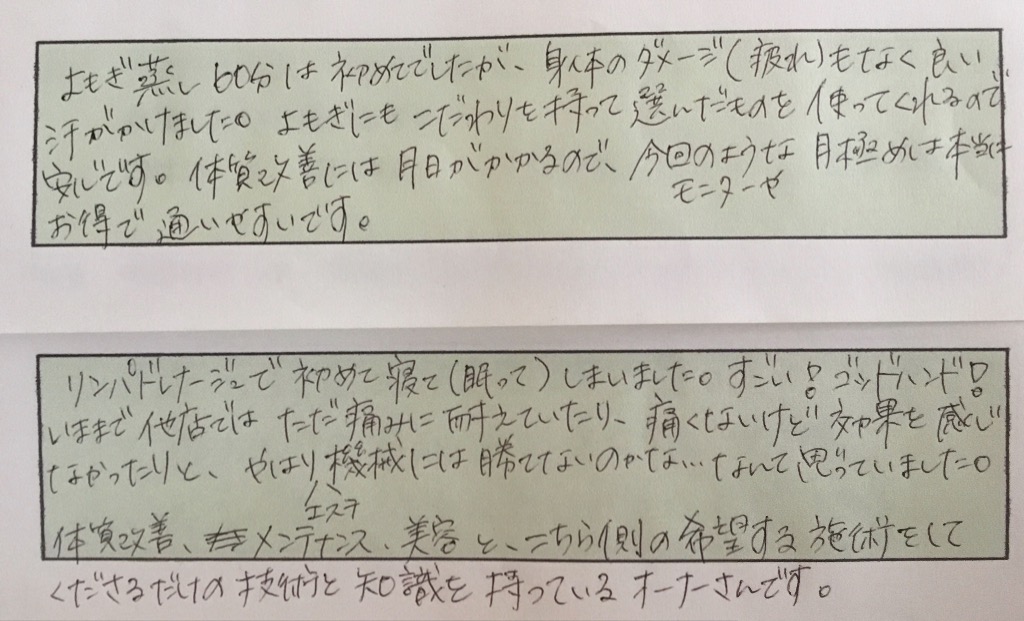 よもぎ蒸し60分は初めてでしたが、身体のダメージ(疲れ)もなく良い
汗がかけました。よもぎにもこだわりを持って選んだものを使ってくれるので
安心です。体質改善には月日がかかるので、今回のようなモニターや月極めは本当に
お得で通いやすいです。
リンパドレナージュで初めて寝て(眠って)しまいました。すごい!ゴッドハンド!
いままで他店ではただ痛みに耐えていたり、痛くないけど効果を感じ
なかったりと、やはりエステ機械には勝てないのかな…なんて思っていました。
体質改善、メンテナンス、美容と、こちら側の希望する施術をして
くださるだけの技術と知識を持っているオーナーさんです。